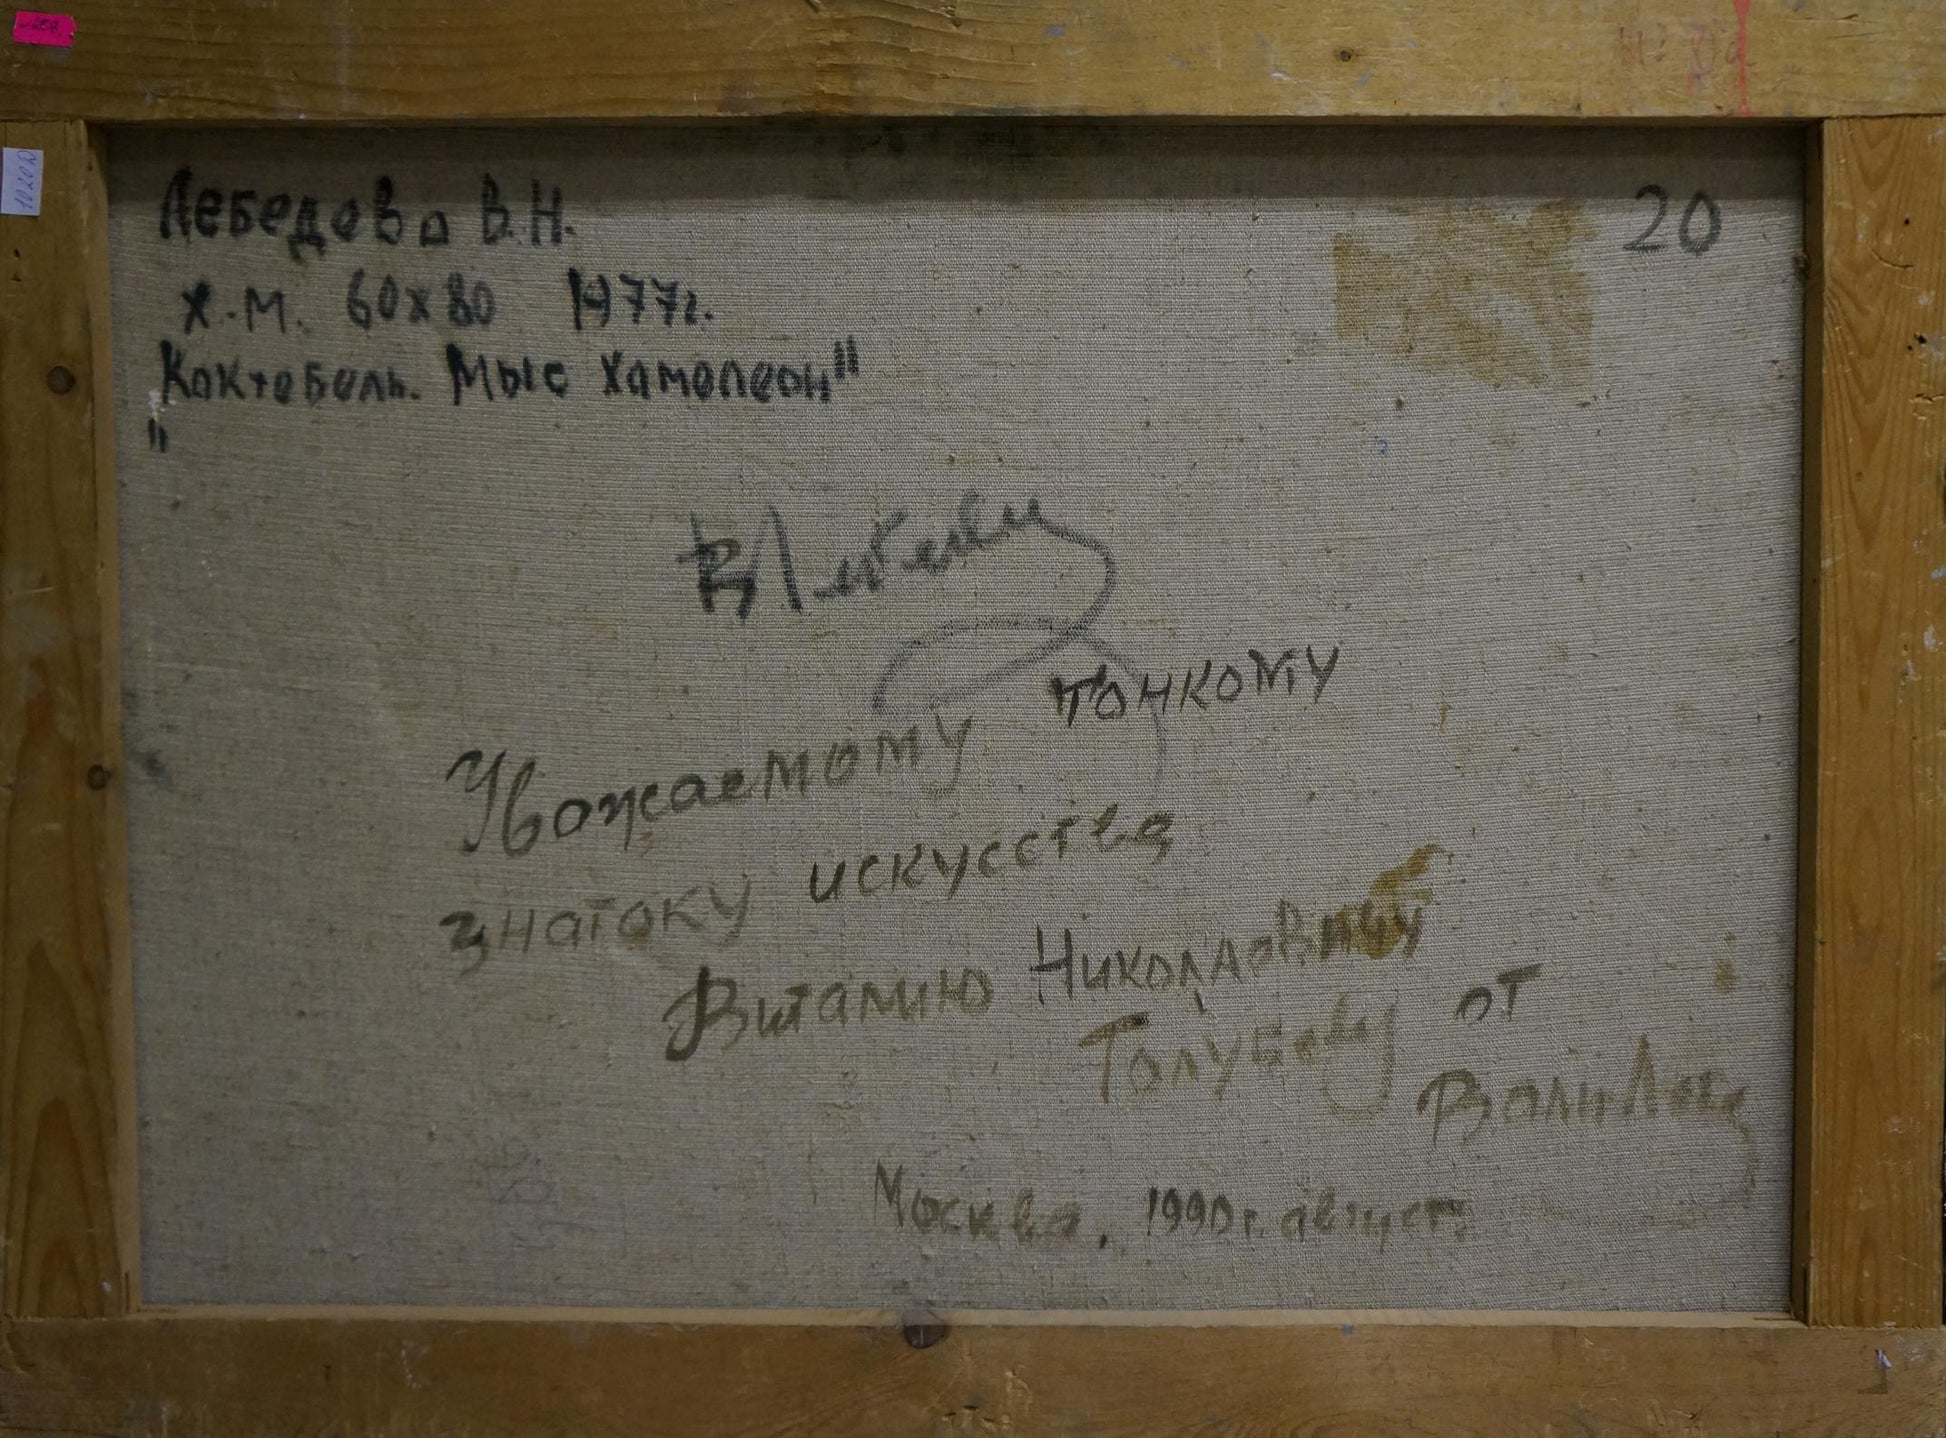 Лебедева В.Н.
20
х.м. 60х80 1977г.
Коктебель. Мыс Хамелеон"
"
Уважаемому тонкому
знатоку искусства
Виталию Николаевичу
Голубеву от
Вали
Москва, 1990 г. август.